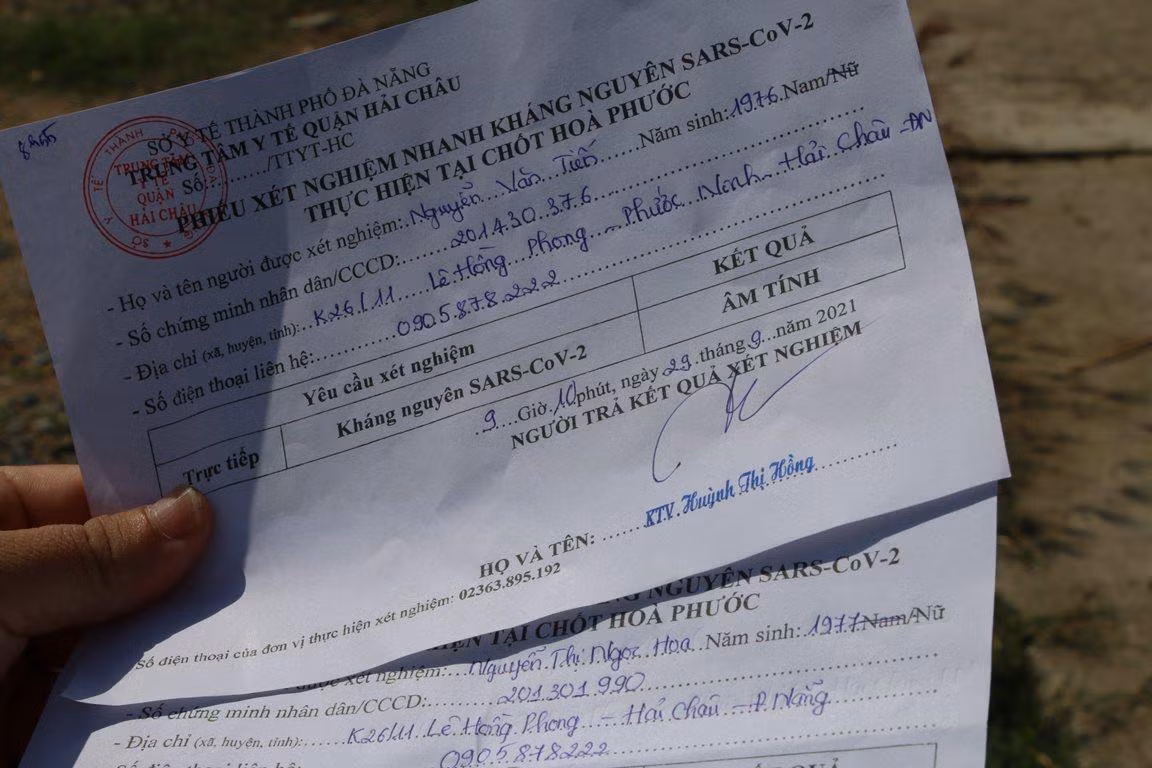 8h55
SỞ Y TẾ THÀNH PHỐ ĐÀ NẴNG
TRUNG TÂM Y TẾ QUẬN HẢI CHÂU
Số:........../TTYT-HC
TRUNG TÂM
Y TẾ
QUẬN
HẢI CHÂU
PHIẾU XÉT NGHIỆM NHANH KHÁNG NGUYÊN SARS-CoV-2
THỰC HIỆN TẠI CHỐT HOÀ PHƯỚC
- Họ và tên người được xét nghiệm: Nguyễn Văn Tiến Năm sinh: 1976 Nam/Nữ
- Số chứng minh nhân dân/CCCD: 201430376
- Địa chỉ (xã, huyện, tỉnh): K26/11 Lê Hồng Phong - Phước Ninh - Hải Châu - ĐN
- Số điện thoại liên hệ: 0905.878.222
Yêu cầu xét nghiệm KẾT QUẢ
Trực tiếp Kháng nguyên SARS-CoV-2 ÂM TÍNH
9 Giờ 10 phút, ngày 29 tháng 9 năm 2021
NGƯỜI TRẢ KẾT QUẢ XÉT NGHIỆM
HỌ VÀ TÊN: KTV. Huỳnh Thị Hồng
Số điện thoại của đơn vị thực hiện xét nghiệm: 02363.895.192
NGUYÊN SARS-CoV-2
TẠI CHỐT HOÀ PHƯỚC
được xét nghiệm: Nguyễn Thị Ngọc Hoa Năm sinh: 1977 Nam/Nữ
- Số chứng minh nhân dân/CCCD: 201301990
- Địa chỉ (xã, huyện, tỉnh): K26/11 Lê Hồng Phong - Hải Châu - Đ. Nẵng
0905878222
KẾT QUẢ